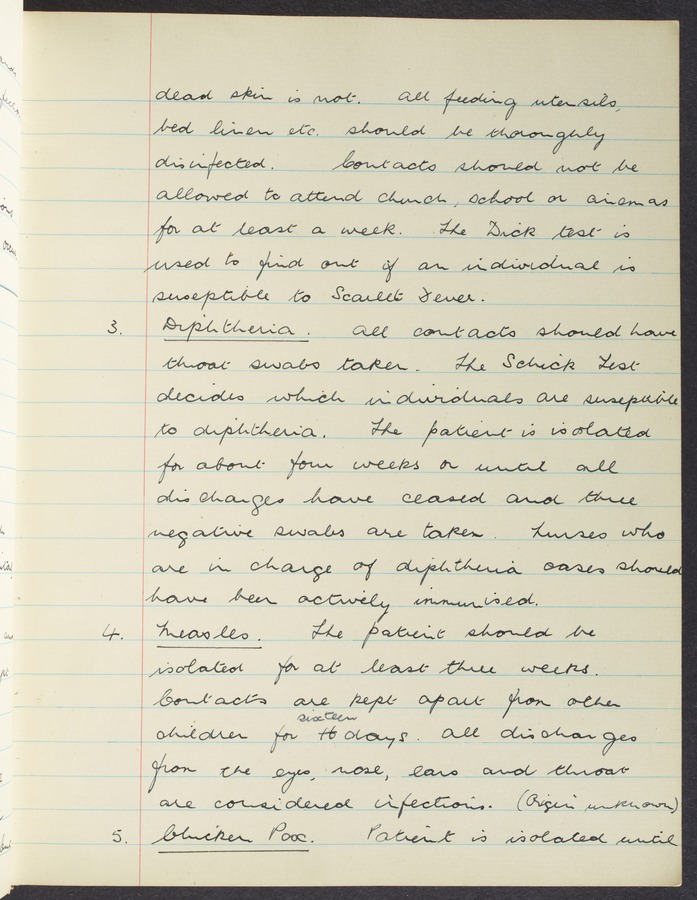 dead skin is not. All feeding utensils,
bed linen etc. should be thoroughly
disinfected. Contacts should not be
allowed to attend church, school or cinemas
for at least a week. The Dick test is
used to find out if an individual is
suseptible to Scarlet Fever.
3. Diphtheria. All contacts should have
throat swabs taken. The Schick Test
decides which individuals are suseptible
to diphtheria. The patient is isolated
for about four weeks or until all
discharges have ceased and three
negative swabs are taken. Nurses who
are in charge of diphtheria cases should
have been actively immunised.
4. Measles. The patient should be
isolated for at least three weeks.
Contacts are kept apart from other
sixteen
children for 16 days. All discharges
from the eyes, nose, ears and throat
are considered infectious. (Origin unknown)
5. Chicken Pox. Patient is isolated until